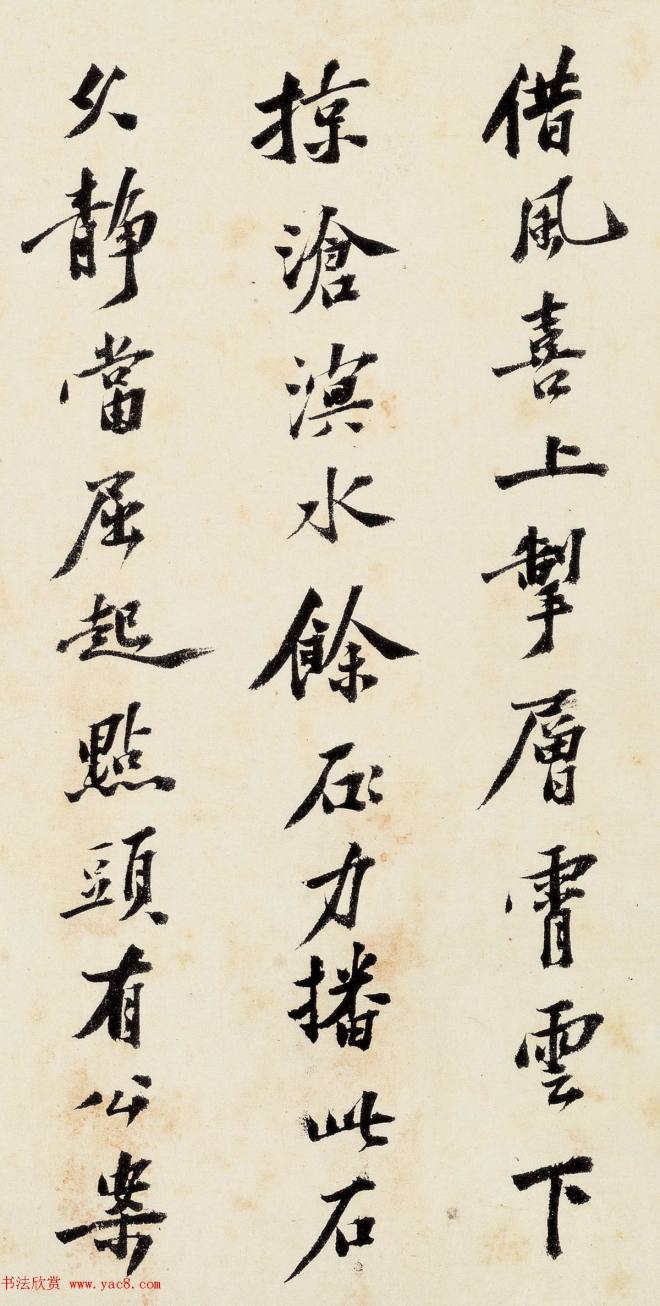 借風喜上掣層霄雲下
掠滄溟水餘力播此石
久靜當屈起點頭有公案
书法欣赏 www.yac8.com